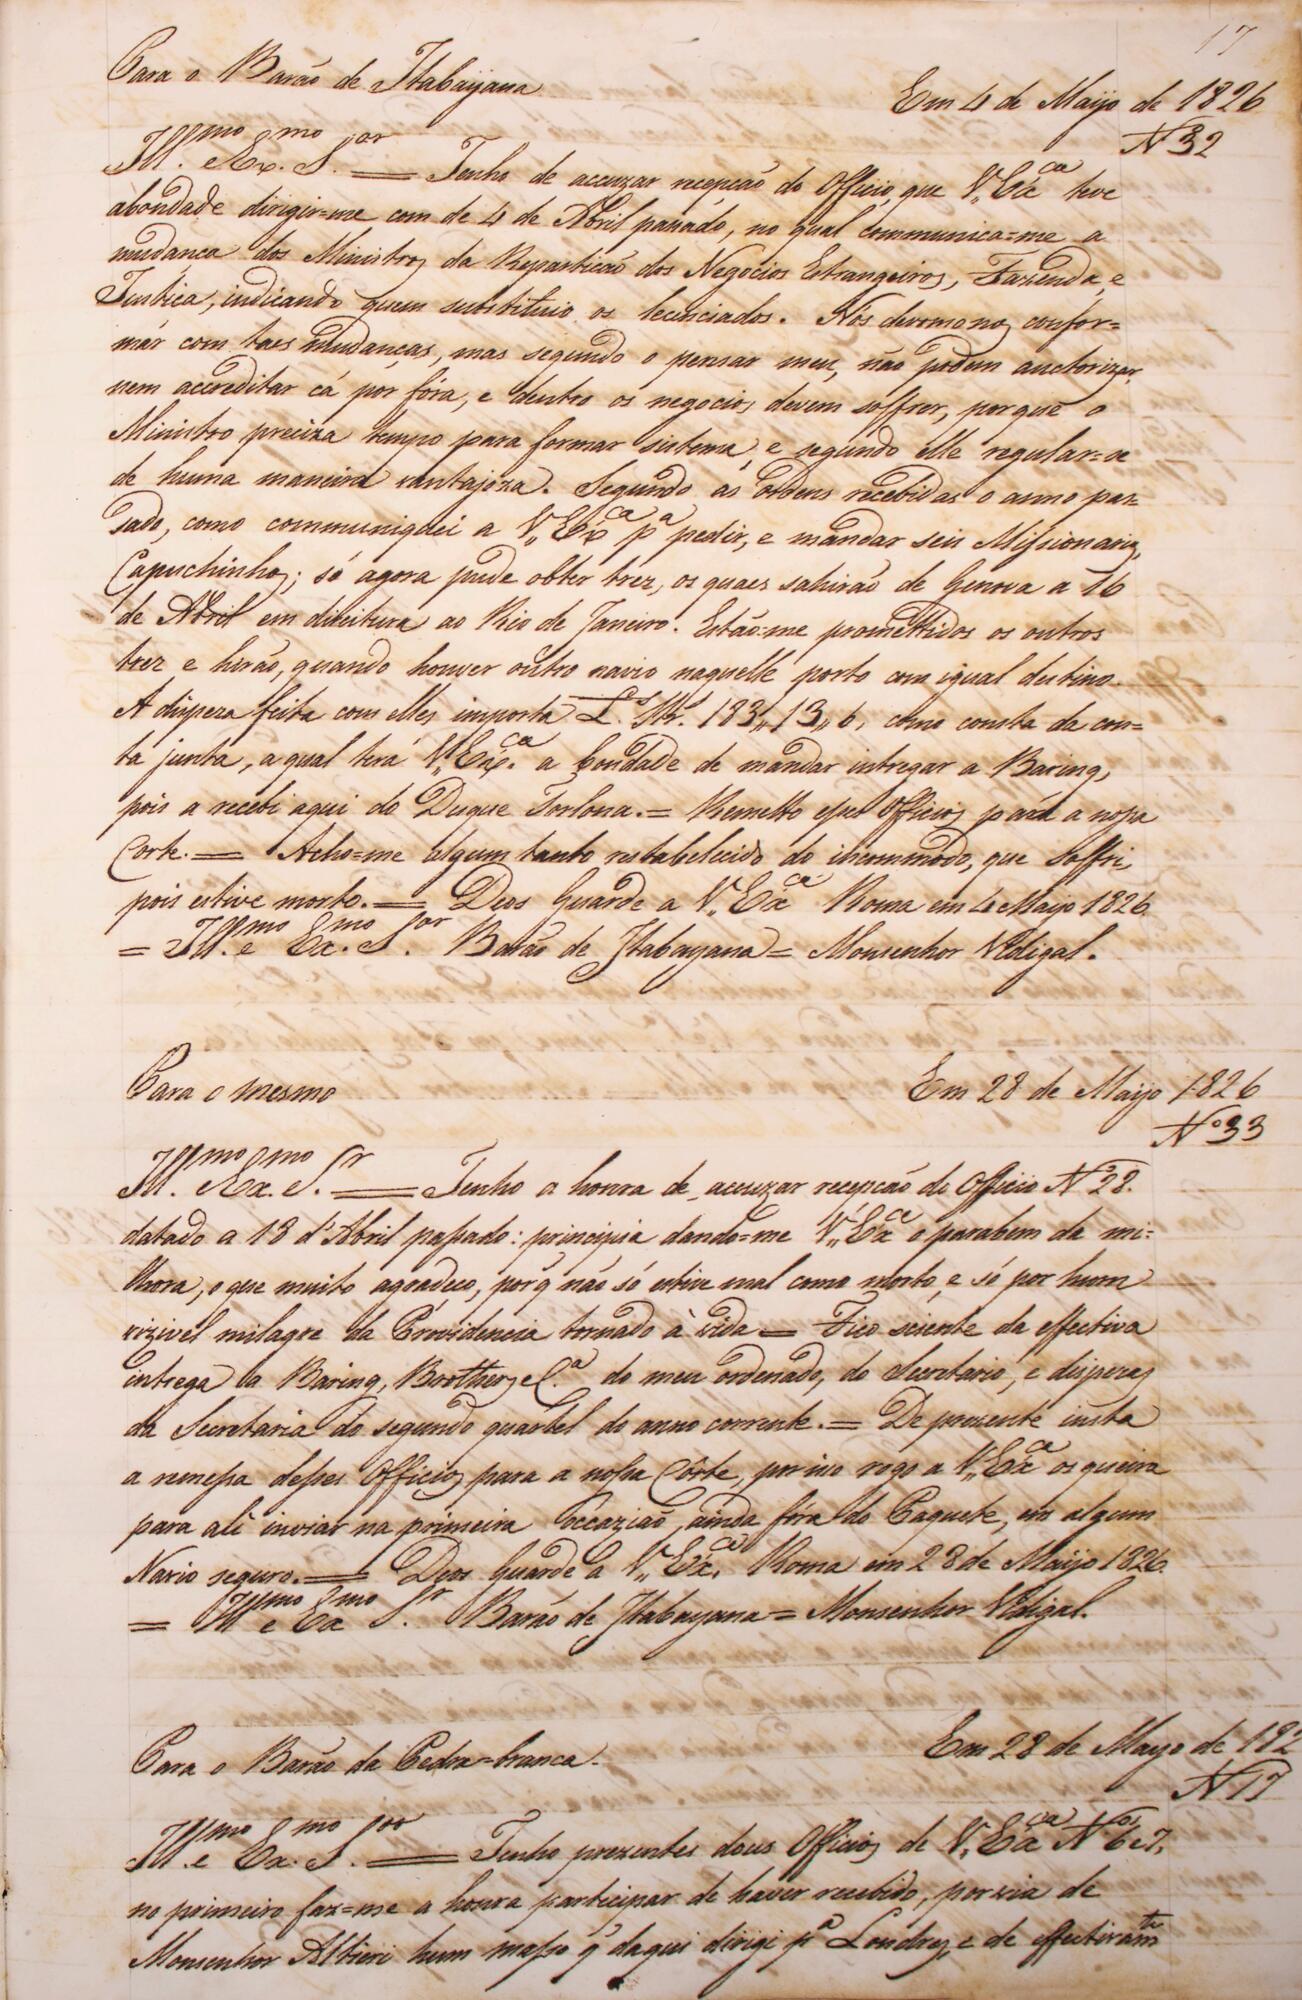 17
Para o Barão de Itabayana
Em 4 de Mayo de 1826
Nº 32
Ill.mo e Ex.mo S.or = Tenho de accuzar recepção do Officio, que V. Exca teve
abondade dirigir=me com de 4 de Abril passado, no qual communica=me a
mudança dos Ministros da Repartição dos Negocios Estrangeiros, Fazenda, e
Justiça, indicando quem substituio os licenciados. Nós devemonos confor=
már com taes mudanças, mas segundo o pensar meu, não podem auctorizar,
nem accreditar cá por fóra, e dentro os negocios devem soffrer, porque o
Ministro preciza tempo para formar sistema, e segundo elle regular=se
de huma maneira vantajoza. Segundo as ordens recebidas o anno pas=
sado, como communiquei a V. Exca pa pedir, e mandar seis Missionarios
Capuchinhos; só agora pude obter trez, os quaes sahirão de Genova a 16
de Abril em direitura ao Rio de Janeiro. Estão=me promettidos os outros
trez e hirão, quando houver outro navio naquelle porto com igual destino.
A dispeza feita com elles importa L.s St.s 183,, 13,, 6, como consta da con=
ta junta, a qual terá V. Exca a bondade de mandar intregar a Baring,
pois a recebi aqui do Duque Torlona. = Remetto esses Officios para a nossa
Corte. = Acho=me algum tanto restabelecido do incommodo, que soffri,
pois estive morto. = Deos Guarde a V. Exca Roma em 4 Mayo 1826
= Ill.mo e Ex.mo S.or Barão de Itabayana = Monsenhor Vidigal.
Para o mesmo
Em 28 de Mayo 1826
Nº 33
Ill.mo Ex.mo S.r = Tenho a honra de accuzar recepção do Officio Nº 28.
datado a 18 d'Abril passado: principia dando=me V. Exca o parabem da mi=
lhora, o que muito agradeço, porq̃ não só estive mal como morto, e só por hum
vizivel milagre da Providencia tornado à vida = Fico sciente da effectiva
intrega a Baring, Brothers e C.a do meu ordenado, do Secretario, e dispezas
da Secretaria do segundo quartel do anno corrente. = De prezente insta
a remessa desses Officios para a nossa Côrte, por isso rogo a V. Exca os queira
para ali inviar na primeira occazião, ainda fóra do Paquete, em algum
Navio seguro. = Deos Guarde a V. Exca. Roma em 28 de Mayo 1826.
= Ill.mo e Ex.mo S.r Barão de Itabayana = Monsenhor Vidigal.
Para o Barão da Pedra=branca.
Em 28 de Mayo de 182
Nº 17
Ill.mo e Ex.mo S.or = Tenho prezentes dous Officios de V. Exca Nos 6 e 7,
no primeiro faz=me a honra participar de haver recebido, por via de
Monsenhor Altieri hum masso q̃ daqui dirigi pa Londres, e de effectivamte